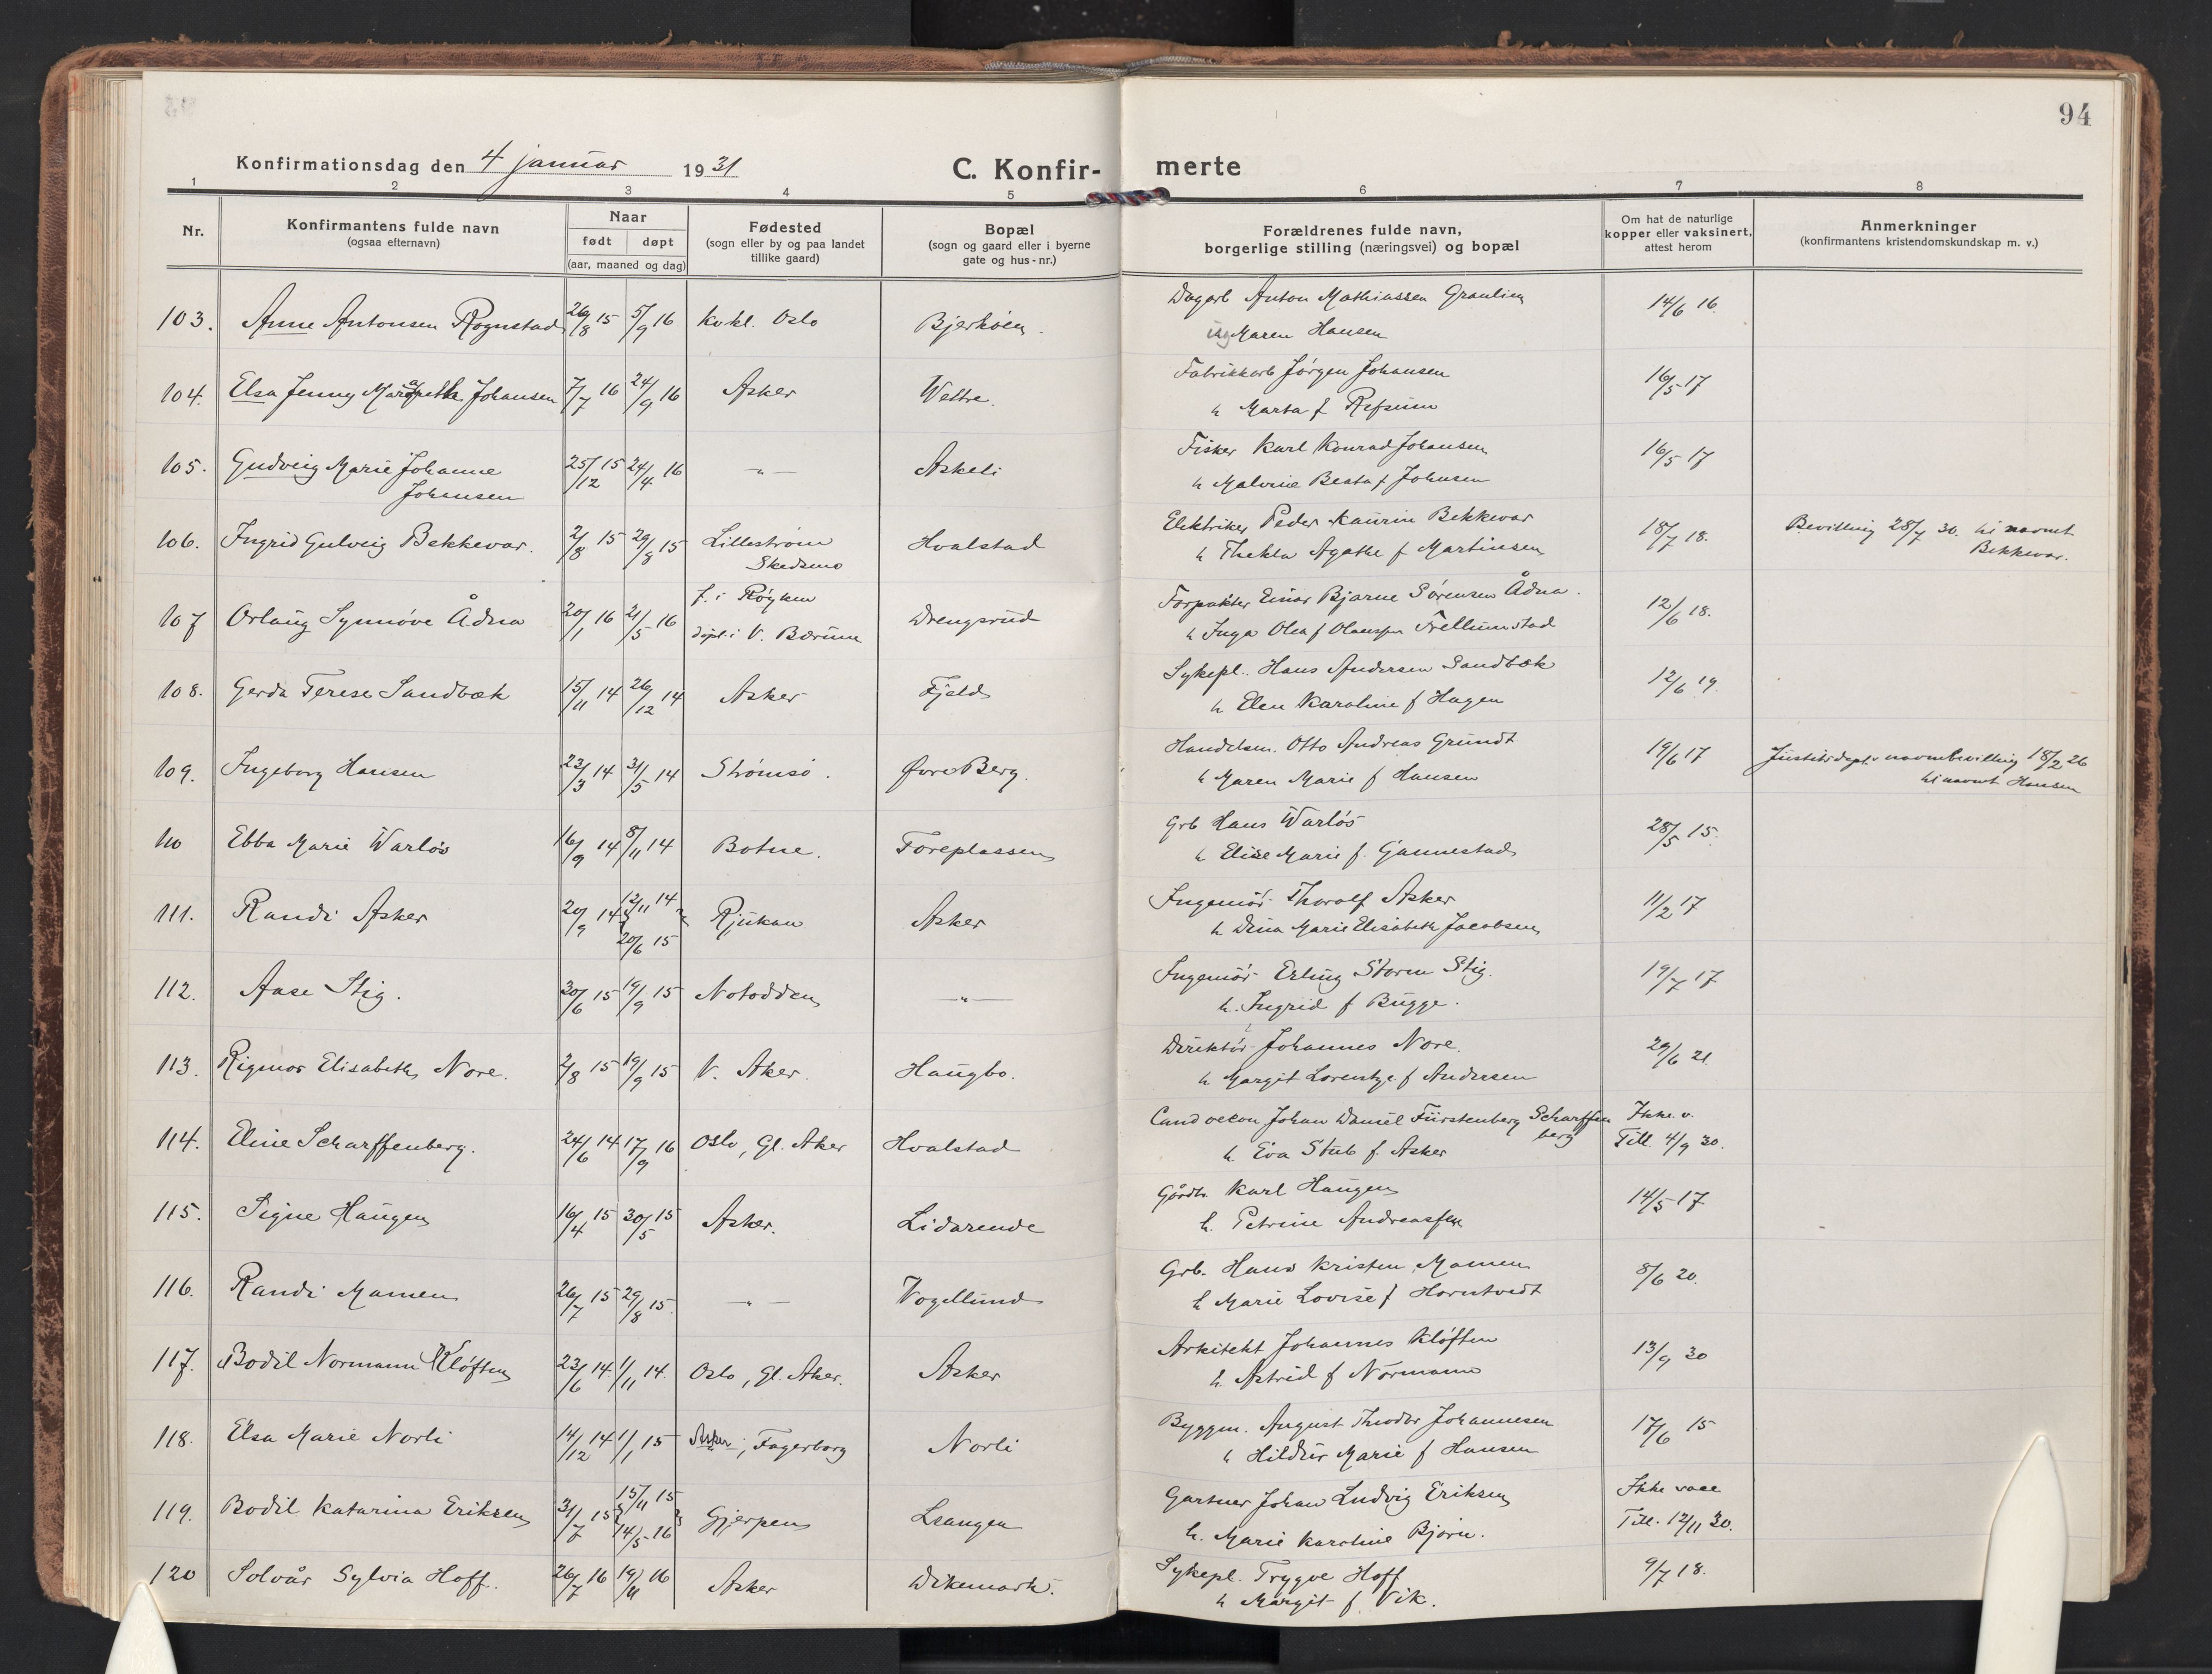 94
Konfirmationsdag den 4 januar 1931
C. Konfir- merte
1 2 3 4 5 6 7 8
Nr.
Konfirmantens fulde navn
(ogsaa efternavn)
Naar
født døpt
(aar, maaned og dag)
Fødested
(sogn eller by og paa landet
tillike gaard)
Bopæl
(sogn og gaard eller i byerne
gate og hus-nr.)
Forældrenes fulde navn,
borgerlige stilling (næringsvei) og bopæl
Om hat de naturlige
kopper eller vaksinert,
attest herom
Anmerkninger
(konfirmantens kristendomskundskap m. v.)
103. Anne Antonsen Rognstad 26/8 15 5/9 16 Kvkl. Oslo Bjerkåsen. Dagarb Anton Mathiassen Graulien 14/6 16.
ug Maren Hansen
104. Elsa Jenny Margrethe Johansen 7/7 16 24/9 16 Asker Wettre. Fabrikkarb Jørgen Johansen 16/5 17
h Marta f Refsum
105. Gudveig Marie Johanne 25/12 15 24/4 16 -"- Askeli Fisker Karl Konrad Johansen 16/5 17
Johansen h Malvine Beata f Johnsen
106. Ingrid Gulveig Bekkevar. 2/8 15 29/8 15 Lillestrøm Hvalstad Elektriker Peder Kaurin Bekkevar 18/7 18. Bevilling 28/7 30. til navnet
Skedsmo h Thekla Agathe f Martinsen Bekkevar.
107 Orlaug Synnøve Ådna 20/1 16 21/5 16 f. i Røyken Drengsrud Forpakter Einar Bjarne Sørensen Ådna. 12/6 18.
døpt i V. Bærum h Inga Olea f Olaussen Frellumstad
108. Gerda Terese Sandbæk 15/11 14 26/12 14 Asker Fjeld Sykepl. Hans Andersen Sandbæk 12/6 19.
h Elen Karoline f Hagen
109. Ingeborg Hansen 23/3 14 31/5 14 Strømsø. Øvre Berg. Handelsm. Otto Andreas Grundt 19/6 17 Justitsdept.s navnebevilling 18/2 26
h Maren Marie f Hansen til navnet Hansen
110 Ebba Marie Warløs 16/9 14 8/11 14 Botne. Toreplassen Grb Hans Warløs 28/5 15.
h Elise Marie f. Gannestad
111. Randi Asker 20/9 14 12/11 14 Rjukan Asker Ingeniør Thorolf Asker 11/2 17
20/6 15 h. Dina Marie Elisabeth Jacobsen
112. Aase Stig. 30/6 15 19/9 15 Notodden -"- Ingeniør Erling Storm Stig. 19/7 17
h. Ingrid f Bugge.
113. Rigmor Elisabeth Nore. 2/8 15 19/9 15 V. Aker. Haugbo. Direktør Johannes Nore. 29/6 21.
h Margit Lorentze f Andersen
114. Eline Scharffenberg. 24/6 14 17/9 16 Oslo, Gl. Aker Hvalstad Cand oecon Johan Daniel Fürstenberg Scharffen Ikke v.
berg Till. 4/9 30.
h. Eva Stub f. Asker
115. Signe Haugen 16/4 15 30/5 15 Asker. Lidarende Gårdb. Karl Haugen 14/5 17
h. Petrine Andreassen
116. Randi Mamen 26/7 15 29/8 15. -"- Vogellund Grb. Hans Kristen Mamen 8/6 20.
h Marie Lovise f Horntvedt
117. Bodil Normann Kløften 23/6 14. 1/11 14. Oslo, Gl. Aker. Asker Arkitekt Johannes Kløften 13/9 30
h. Astrid f Normann
118. Elsa Marie Norli 14/12 14 1/1 15 Asker, Fagerborg Norli Byggm. August Theodor Johannesen 17/6 15
h Hildur Marie f Hansen
119. Bodil Katarina Eriksen 31/7 15 15/11 15 Gjerpen Leangen Gartner Johan Ludvig Eriksen Ikke vacc
14/5 16 h. Marie Karoline Bjørn. Till. 12/11 30.
120 Solvår Sylvia Hoff. 26/7 16 19/11 16 Asker Dikemark. Sykepl. Trygve Hoff 9/7 18.
h Margit f. Vik.